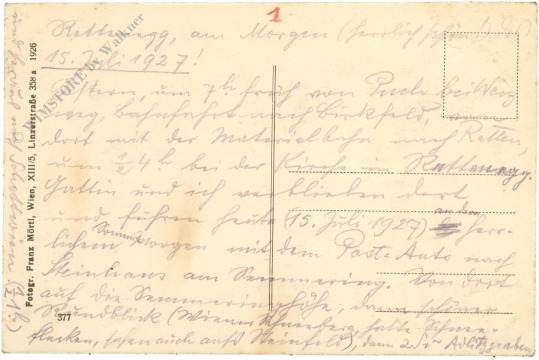 1
Rettenegg, am Morgen (herrlich schön!)
15. Juli 1927!
Gestern, um 7h früh von Puch bei Weiz
weg, Bahnfahrt nach Birkfeld, von
dort mit der Materialbahn nach Retten,
um ½ 4h bei der Kirche in Rettenegg.
Gattin und ich verblieben dort
und führen heute (15. Juli 1927) an dem herr-
lichem Sommermorgen mit dem Post-Auto nach
Steinhaus am Semmering. Von dort
auf die Semmeringhöhe, dann schöner
Rundblick (Wiener Schneeberg, hatte Schnee-
flecken, sahen auch aufs Steinfeld), dann 2 Adlitzgraben
Fotogr. Franz Mörtl, Wien, XIII/5, Linzerstraße 358a 1926
377
IMSTORE by Walkner